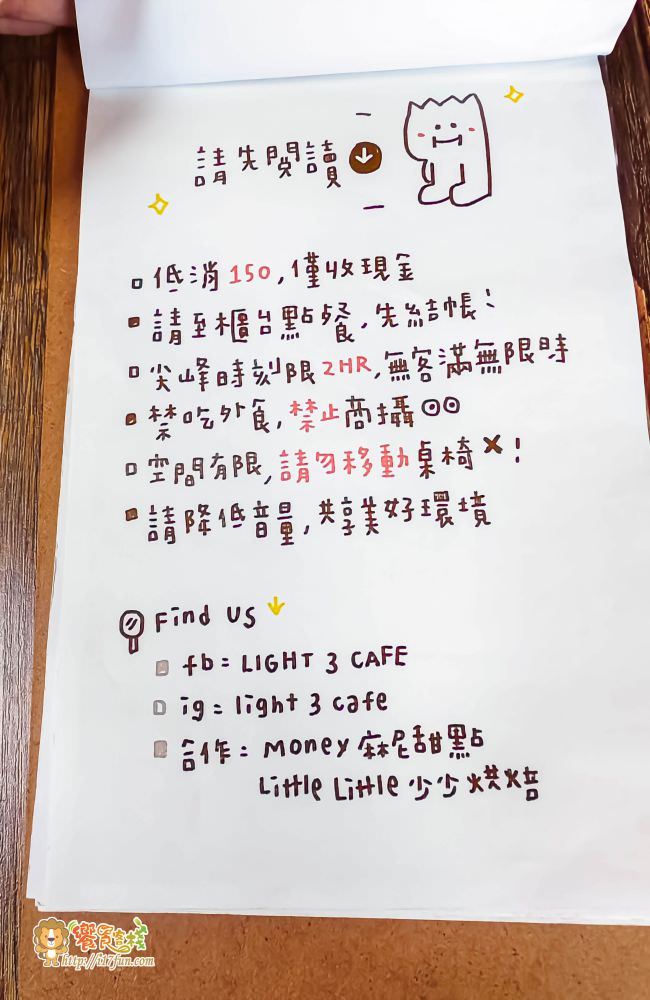 請先閱讀
低消150,僅收現金
請至櫃台點餐,先結帳!
尖峰時刻限2HR,無客滿無限時
禁吃外食,禁止商攝
空間有限,請勿移動桌椅×!
請降低音量,共享美好環境
Find us
fb=LIGHT 3 CAFE
ig=light 3 cafe
合作=money麻尼甜點
Little Little 少少烘焙
饗食客棧
http://i17fun.com